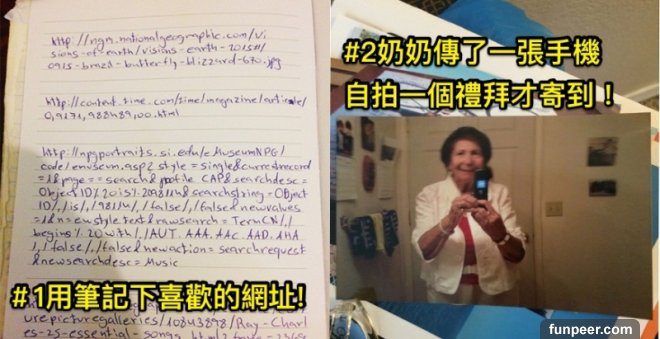 http://ngm.nationalgeographic.com/vi
sions-of-earth/visions-earth-2015#/
0915-brazil-butterfly-blizzard-670.jpg
http://content.time.com/time/magazine/article/
0,9171,988489,00.html
http://npgportraits.si.edu/eMuseumNPG/
code/emuseum.asp?style=single&currentrecord
=1&page=search&profile=CAP&searchdesc=
Object ID/,%20is%20
ID/,/is/,/98114/,/false/,/false&newvalues
=1&newstyle=text&rawsearch=TermCN/,/
begins%20with/,/AUT.AAA.AAC.AAD.AHA
/,/false/,/false&newaction=searchrequest
&newsearchdesc=Music
#1用筆記下喜歡的網址!
urepicturegalleries/10843898/Ray-Charl
es-25-essential-songs.html?
#2奶奶傳了一張手機
自拍一個禮拜才寄到!
funpeer.com